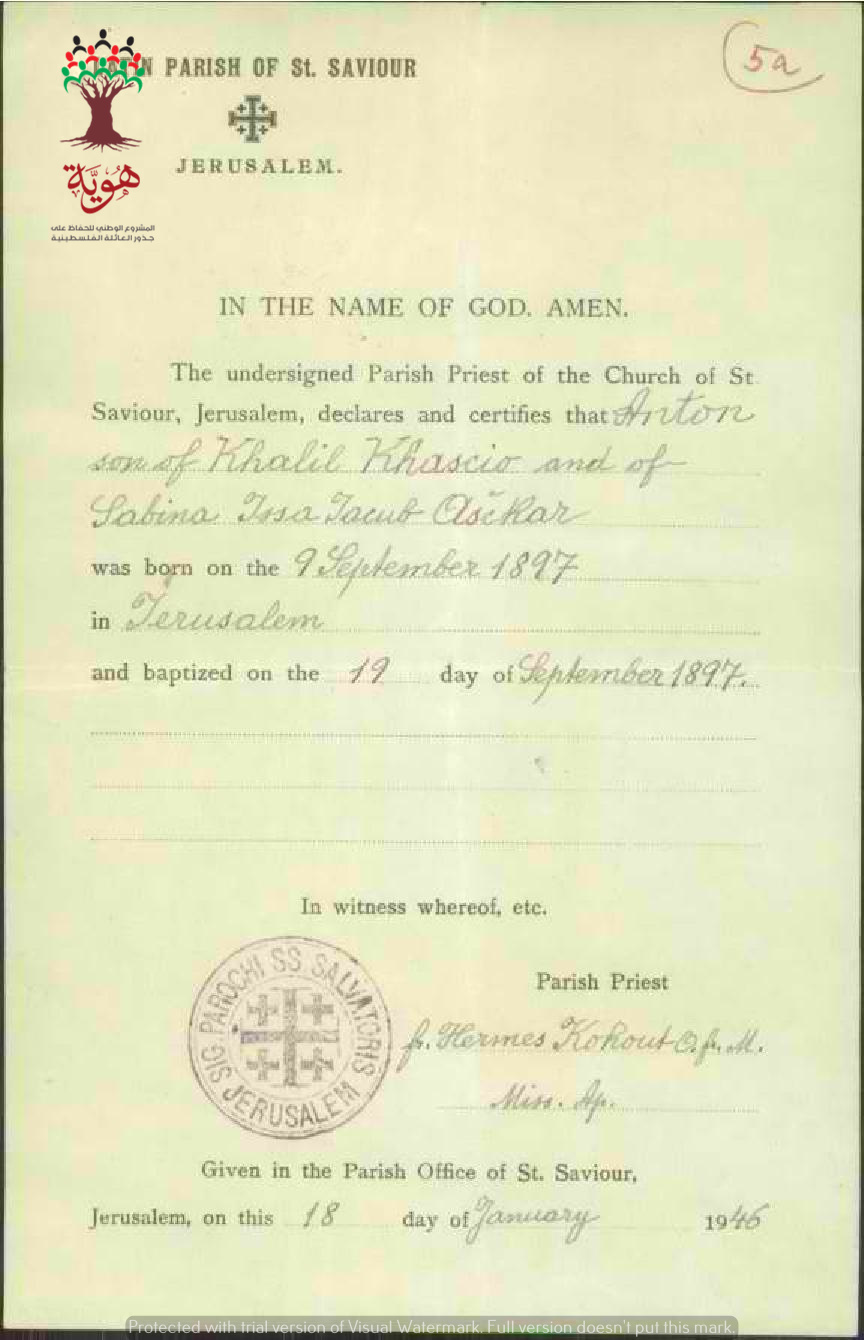 LATIN PARISH OF St. SAVIOUR
5a
JERUSALEM.
هوية
المشروع الوطني للحفاظ على
جذور العائلة الفلسطينية
IN THE NAME OF GOD. AMEN.
The undersigned Parish Priest of the Church of St
Saviour, Jerusalem, declares and certifies that Anton
son of Khalil Khascio and of
Sabina Issa Jacub Ačkar
was born on the 9 September 1897
in Jerusalem
and baptized on the 19 day of September 1897.
In witness whereof, etc.
SIG PAROCHI SS SALVATORIS JERUSALEM
Parish Priest
fr. Hermes Kohout O.f.M.
Miss. Ap.
Given in the Parish Office of St. Saviour,
Jerusalem, on this 18 day of January 1946
Protected with trial version of Visual Watermark. Full version doesn't put this mark.